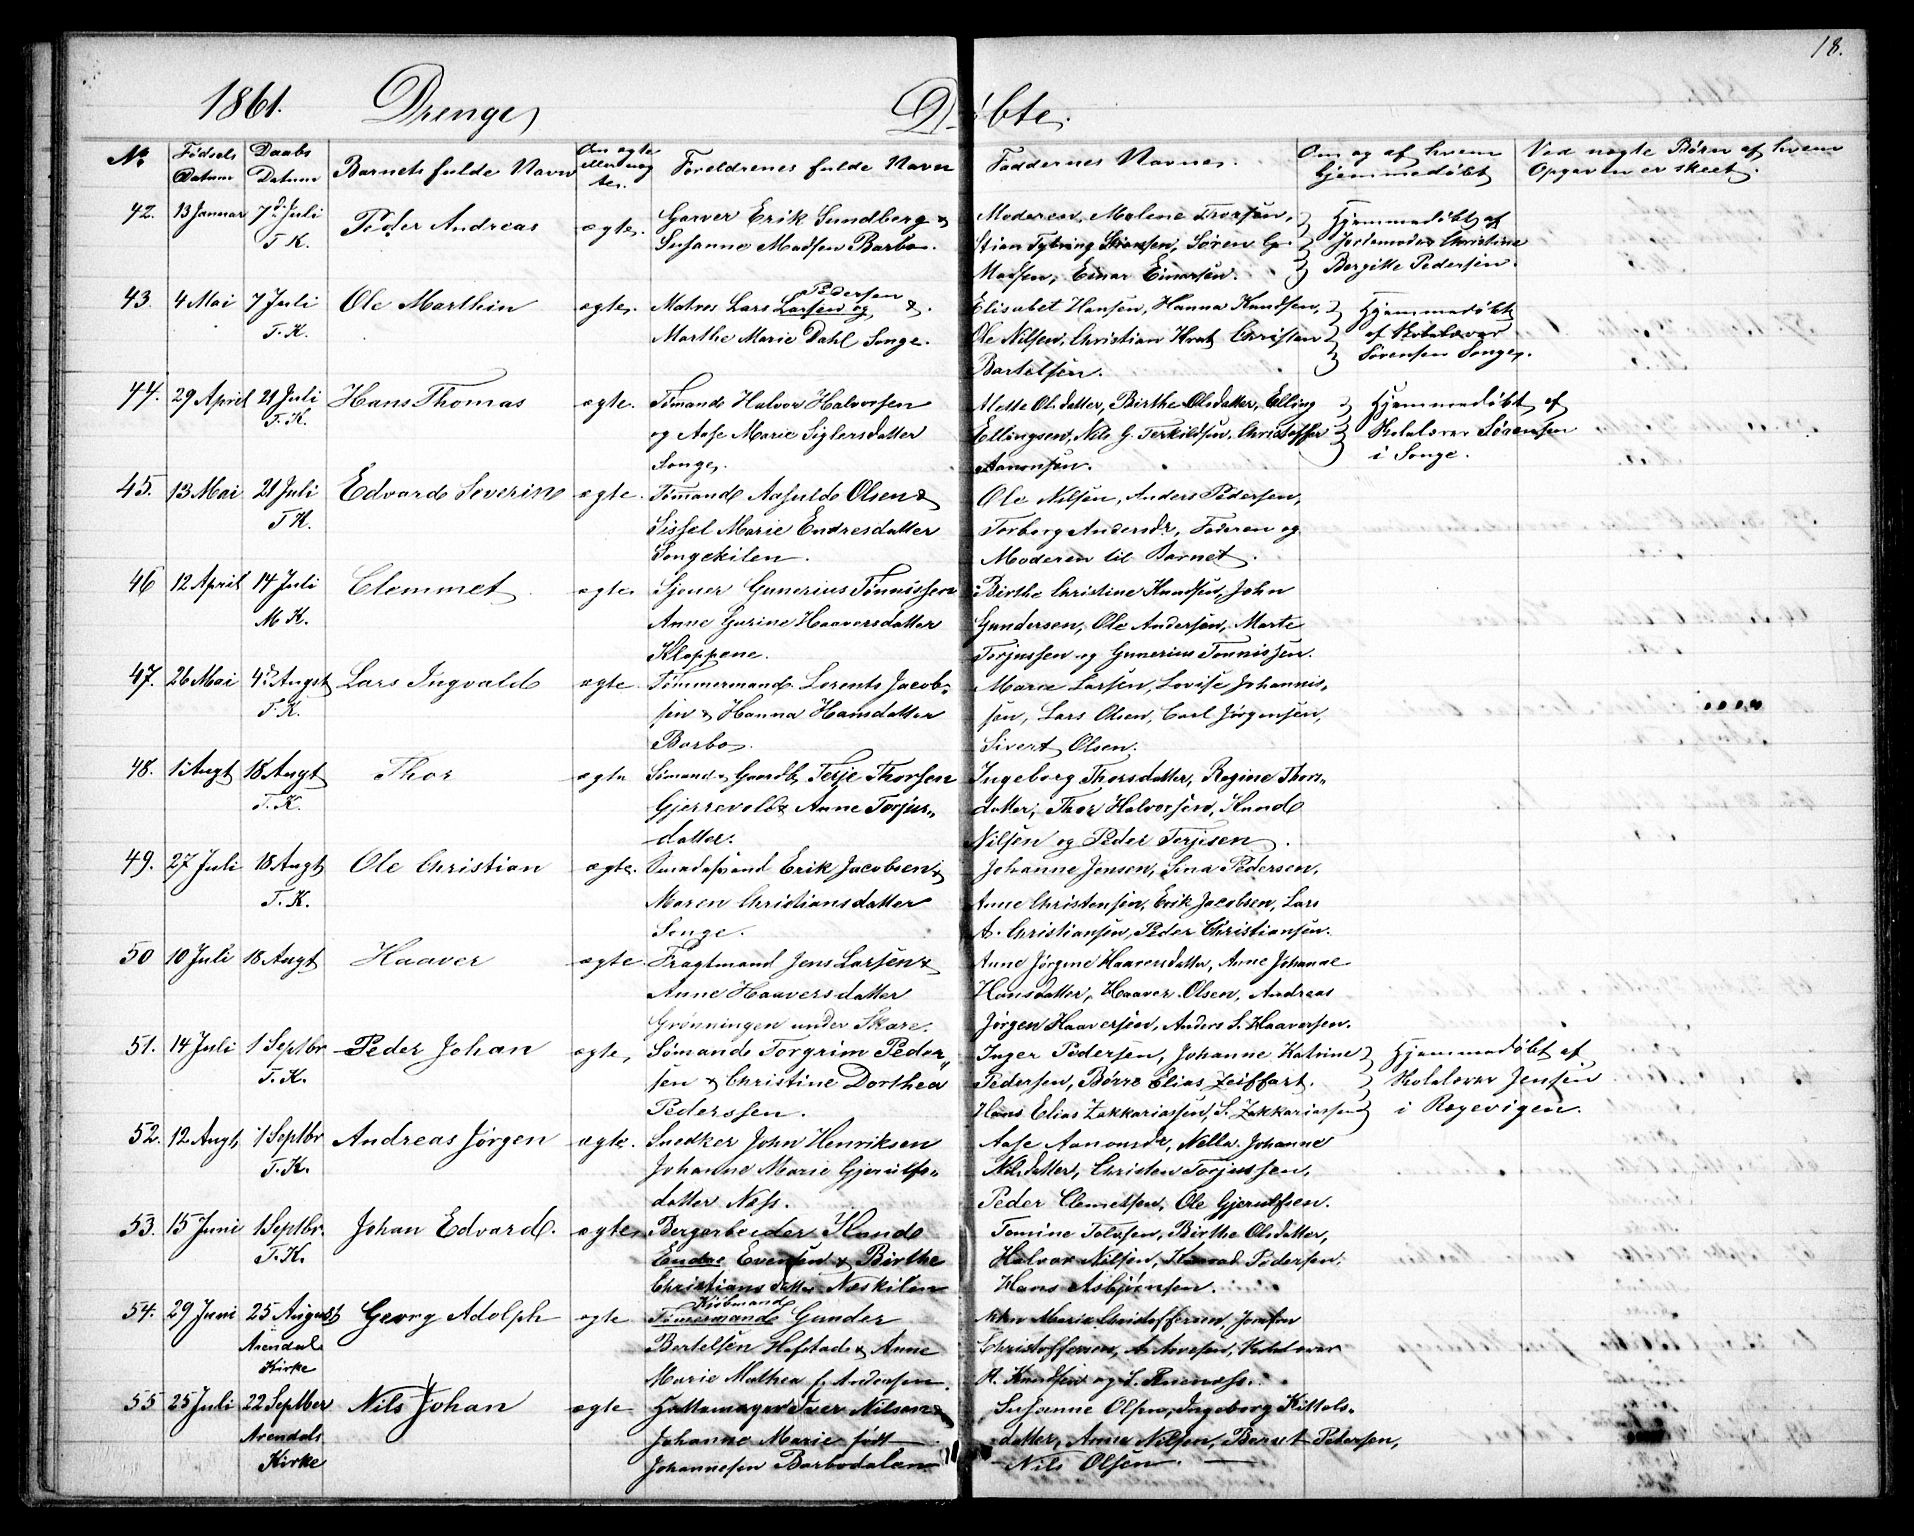 18.
1861. Drenge, Døbte.
No. Fødsels Datum Daabs Datum Barnets fulde Navn Om ægte eller uægte. Foreldrenes fulde Navn Faddernes Navne. Om og af hvem hjemmedøbt Ved uægte Børn af hvem Opgaven er skeet.
42. 13 Januar 7de Juli Peder Andreas ægte. Garver Erik Sundberg & Moderen, Molene Hjemmedøbt af
T. K. Susanne Madsen Barbo. Søren G. Jordemoder Christine
Madsen, Einar Einarsen. Bergitte Pedersen.
43. 4 Mai 7 Juli Ole Marthin ægte. Matros Lars Larsen og Pedersen &. Elisabet Hansen, Hanna Knudsen, Hjemmedøbt
T. K. Marthe Marie Dahl Songe. Ole Nilsen, Christian Christen af Skolelærer
Bartelsen. Sørensen Songe.
44. 29 April 21 Juli Hans Thomas ægte. Sømand Halvor Halvorsen Mette Olsdatter, Birthe Olsdatter, Elling Hjemmedøbt af
T. K. og Aase Marie Siglersdatter Ellingsen, Nils G. Terkildsen, Christoffer Skolelærer Sørensen
Songe. Aanonsen. i Songe.
45. 13 Mai 21 Juli Edvard Severin ægte. Sømand Aasuld Olsen & Ole Nilsen, Anders Pedersen,
T. K. Sissel Marie Endresdatter Torborg Andersdr, Faderen og
Songekilen. Moderen til Barnet.
46 12 April 14 Juli Clemmet ægte Sjouer Gunerius Tønnissen Birthe Christine Knudsen, John
M. K. Anne Gurine Haaversdatter Gundersen, Ole Andersen, Marte
Kloppene. Torjussen og Gunerius Tønnissen.
47. 26 Mai 4de Augst Lars Ingvald ægte. Tømmermand Lorents Jacob- Maria Larsen, Lovise Johannis-
T. K. sen & Hanna Hansdatter sen, Lars Olsen, Carl Jørgensen,
Barbo. Sivert Olsen.
48. 1 Augt 18 Augt Thor ægte Sømand & Gaardb. Terje Thorsen Ingeborg Thorsdatter, Regine Thors-
T. K. Gjerrevold & Anne Torjus- datter, Thor Halvorsen, Knud
datter. Nilsen og Peder Torjesen.
49. 27 Juli 18 Augt Ole Christian ægte. Smedesvend Erik Jacobsen & Johanne Jensen, Sina Pedersen,
T. K. Maren Christiansdatter Anne Christensen, Erik Jacobsen, Lars
Songe. A. Christiansen, Peder Christiansen.
50 10 Juli 18 Augt Haaver ægte Fragtmand Jens Larsen & Anne Jørgine Haaversdatter, Anne Johanne
Anne Haaversdatter Hansdatter, Haaver Olsen, Andreas
Grønningen under Skare. Jørgen Haaversen, Anders S. Haaversen.
51. 14 Juli 1 Septbr Peder Johan ægte, Sømand Torgrim Peder- Inger Pedersen, Johanne Katrine Hjemmedøbt af
T. K. sen & Christine Dorthea Pedersen, Børre Elias Zeiffart. Skolelærer Jensen
Pederssen. Hans Elias Zakkariassen, S. Zakkariassen i Rægevigen.
52. 12 Augt, 1 Septbr Andreas Jørgen ægte. Snedker John Henriksen Aase Aanonsdr, Nella Johanne
T. K. Johanne Marie Gjerulfs- Nilsdatter, Christen Torjussen,
datter Næs. Peder Clemetsen, Ole Gjerulfsen.
53. 15 Juni 1 Septbr. Johan Edvard. ægte, Bergarbeider Tomine Tolessen, Birthe Olsdatter,
T. K. Endre Evensen & Birthe Halvor Nilsen, Pedersen,
Christiansdatter Neskilen Hans Asbjørnsen.
54. 29 Juni 25 August Georg Adolph ægte Kjøbmand Tømmermand Gunder Maria Christoffersen, Josefen
Arendal Bertelsen Hofstad & Anne Christoffersen, A. Arvesen, Skolelærer
Kirke Marie Mathea f. Andersen. A. Knudsen og
55 25 Juli 22 Septber Nils Johan ægte Hattemager Iver Nilsen & Susanne Olsen, Ingeborg Kittels-
Arendals Johanne Marie født datter, Anne Nilsen, Bernt Petersen,
Kirke Johannesen Barbodalen Nils Olsen.